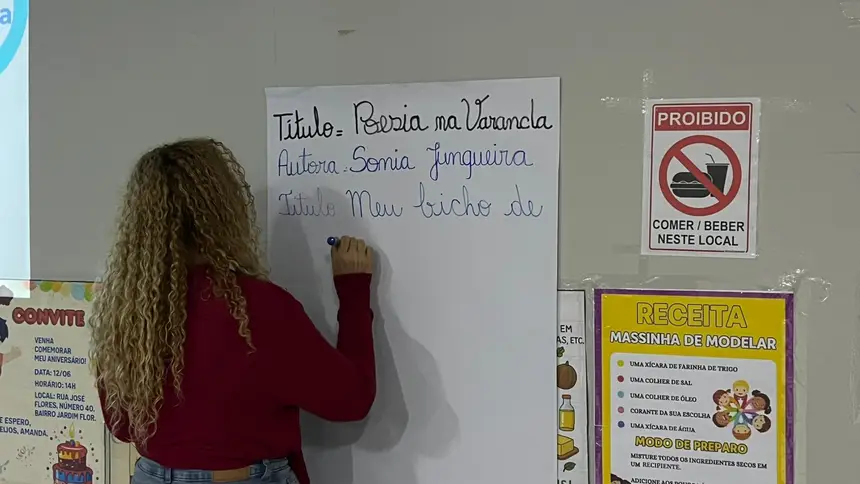 a
Titulo = Poesia na Varanda
Autora = Sonia Junqueira
Titulo Meu bicho de
PROIBIDO
COMER / BEBER
NESTE LOCAL
CONVITE
VENHA
COMEMORAR
MEU ANIVERSÁRIO!
DATA: 12/06
HORÁRIO: 14H
LOCAL: RUA JOSÉ
FLORES, NÚMERO 40,
BAIRRO JARDIM FLOR.
E ESPERO,
EIJOS, AMANDA.
EM
AS, ETC.
RECEITA
MASSINHA DE MODELAR
UMA XÍCARA DE FARINHA DE TRIGO
UMA COLHER DE SAL
UMA COLHER DE ÓLEO
CORANTE DA SUA ESCOLHA
UMA XÍCARA DE ÁGUA
MODO DE PREPARO
MISTURE TODOS OS INGREDIENTES SECOS EM
UM RECIPIENTE.
ADICIONE AOS